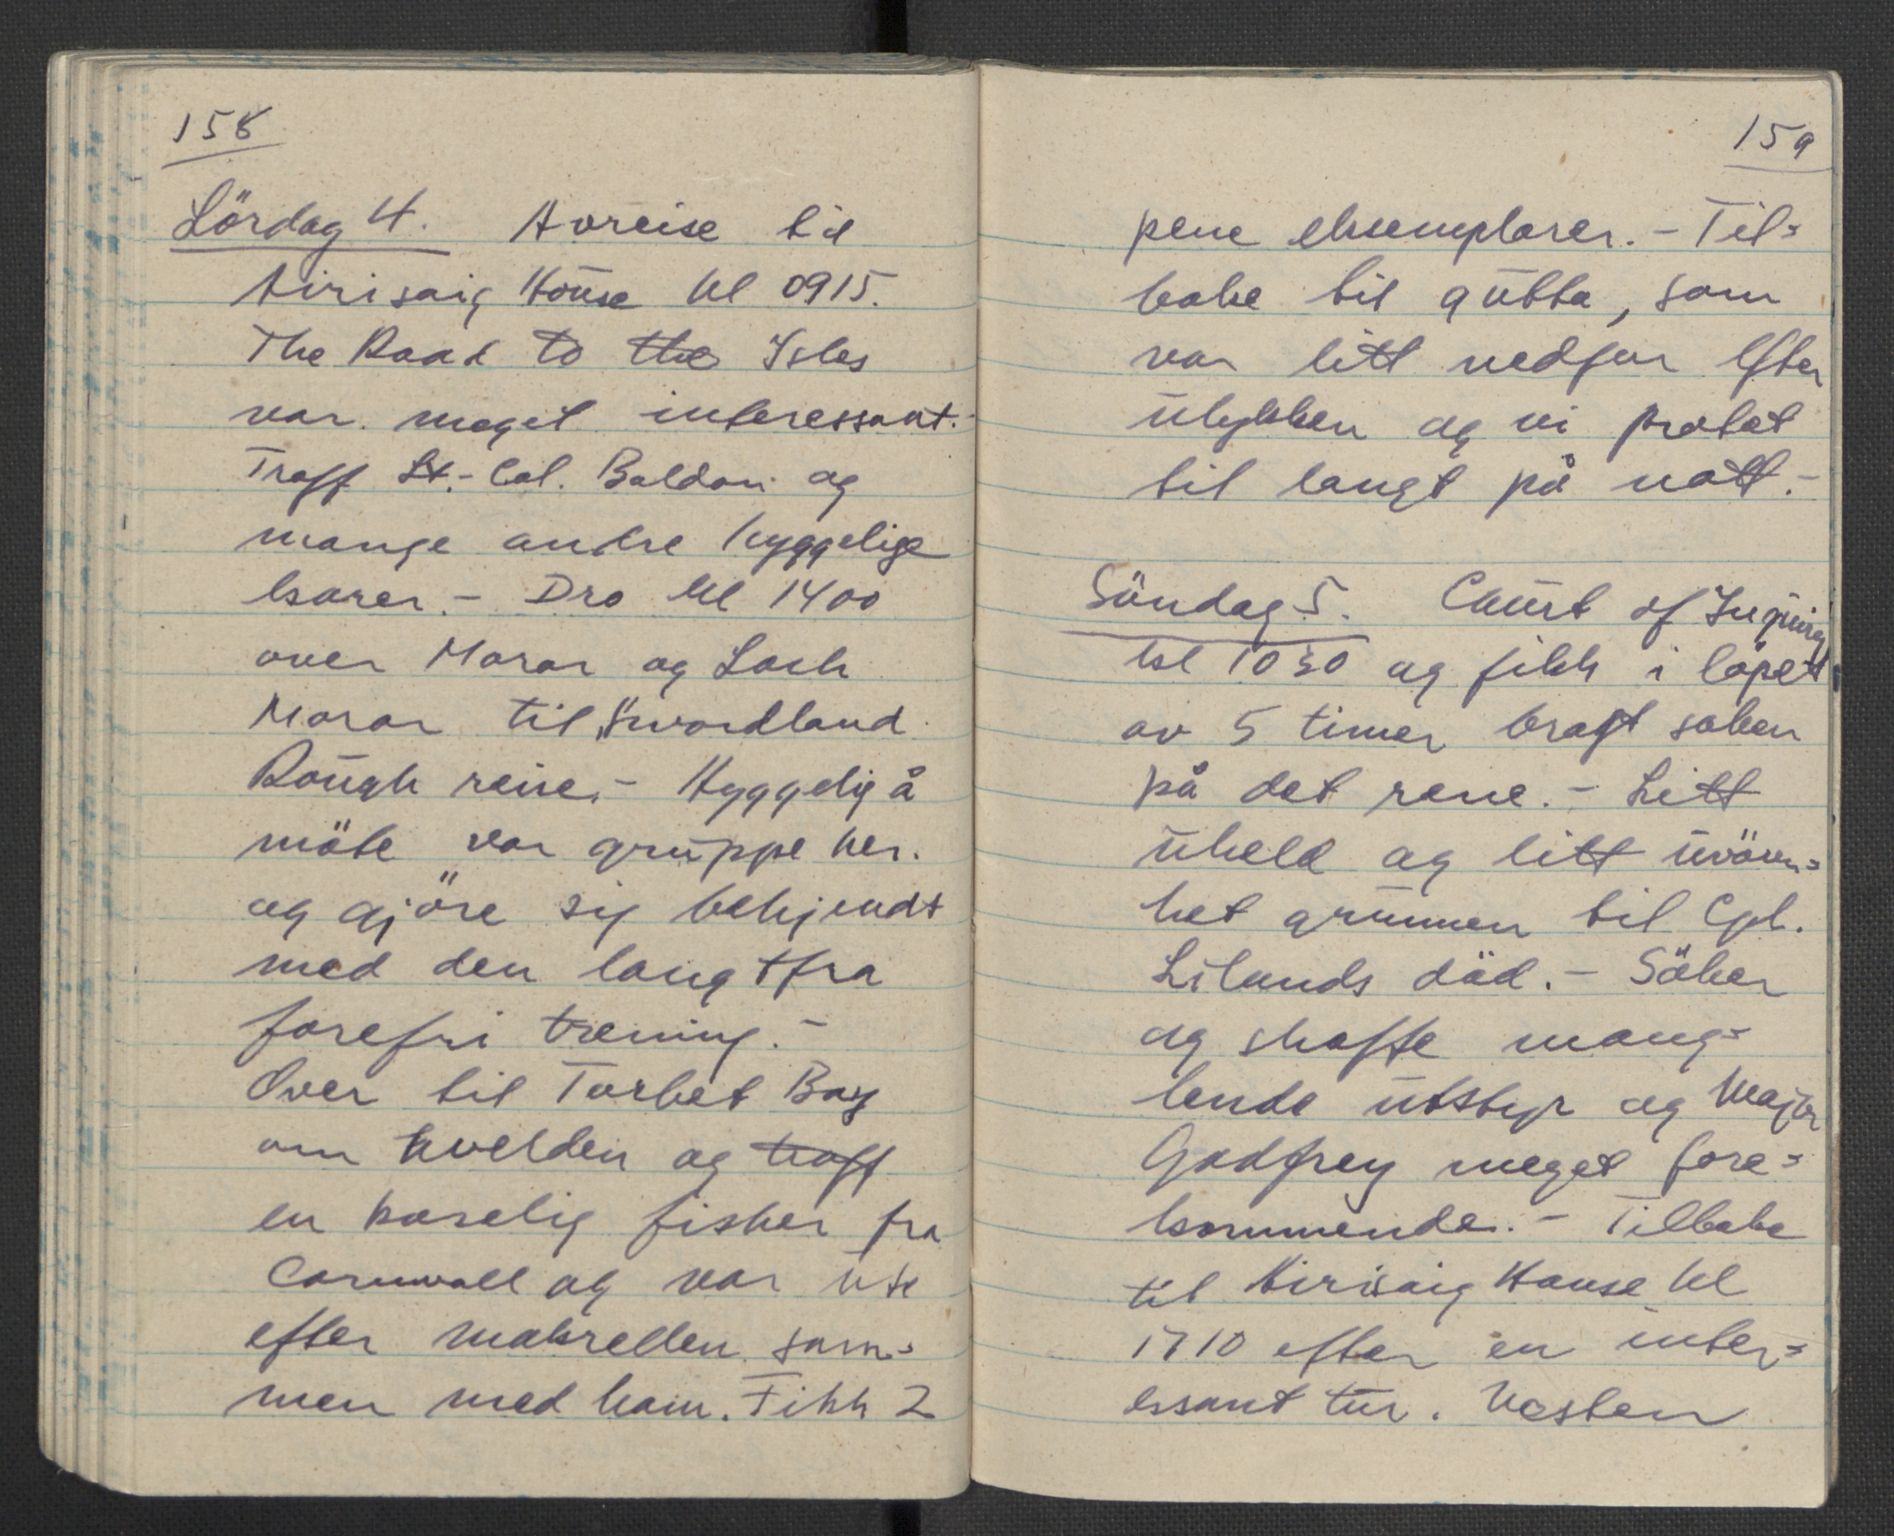 158
Lördag 4. Avreise til
Airisaig House kl 0915.
The Road to the Isles
var meget interessant.
Traff Lt.-Col. Balden og
mange andre hyggelige
karer. - Dro kl 1400
over Morar og Loch
Morar til Swordland.
Rough reise. - Hyggelig å
möte vor gruppe her.
og gjöre sig bekjendt
med den langtfra
farefri trening. -
Over til Tarbet Bay
om kvelden og traff
en koselig fisker fra
Cornwall og var ute
efter makrellen sam=
men med ham. Fikk 2
159
pene eksemplarer. - Til=
bake til gutta, som
var litt nedfor efter
ulykken og vi pratet
til langt på natt. -
Söndag 5. Court of Inquiry
kl 1030 og fikk i löpet
av 5 timer bragt saken
på det rene. - Litt
uheld og litt uvören=
het grunnen til Cpl.
Lilands död. - Söker
og skaffe mang=
lende utstyr og Major
Godfrey meget fore=
kommende. - Tilbake
til Airisaig House kl
1710 efter en inter=
essant tur. Vesten